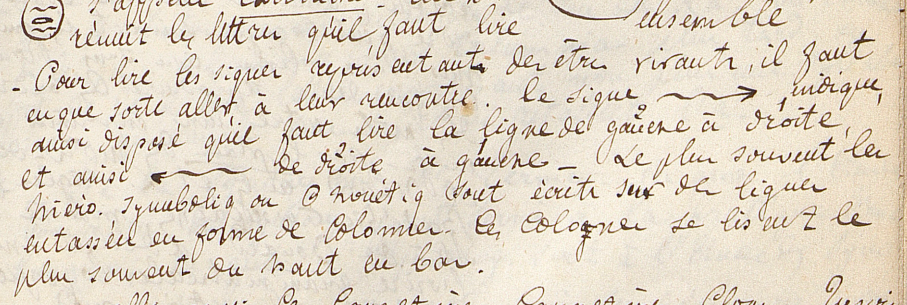 s'appelle
réunit les lettres qu'il faut lire ensemble
- Pour lire les signes représentant des êtres vivants, il faut
en que sorte aller à leur rencontre. Le signe ⟿ indique,
ainsi disposé qu'il faut lire la ligne de gauche à droite,
et ainsi ⬳ de droite à gauche - Le plus souvent les
hiero. symboliq ou phonétiq sont écrits sur des lignes
entassées en forme de colonnes. Ces colognes se lisent le
plus souvent du haut en bas.